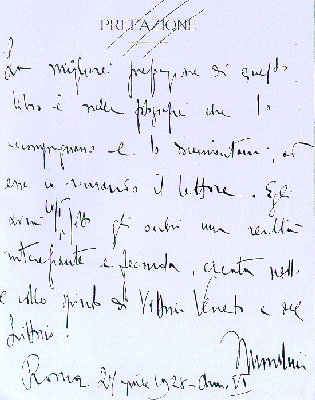 PREFAZIONE
La migliore prefazione di questo
libro è nelle fotografie che lo
accompagnano e lo documentano; ad
esse io rimando il lettore. Egli
avrà così sotto gli occhi una realtà
interessante e feconda, creata nel
e dello spirito di Vittorio Veneto e del
Littorio.
Mussolini
Roma 27 1928 - Anno VI